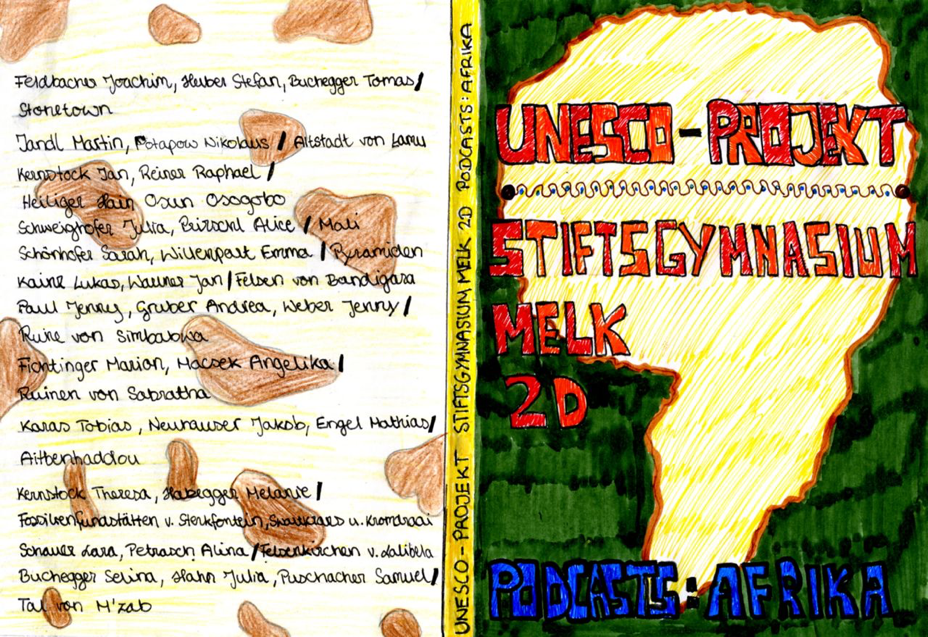 Feldbacher Joachim, Huber Stefan, Buchegger Tomas/
Stonetown
Jandl Martin, Potapow Nikolaus / Altstadt von Lamu
Kernstock Jan, Reiner Raphael /
Heiliger Hain Osun Osogobo
Schweighofer Julia, Alice / Mali
Schönhofer Sarah, Willenpart Emma / Pyramiden
Kainz Lukas, Wauner Jan / Felsen von Bandigara
Paul Jenny, Gruber Andrea, Weber Jenny /
Ruine von Simbabwa
Fichtinger Marion, Macsek Angelika /
Ruinen von Sabratha
Karas Tobias, Neuhauser Jakob, Engel Matthias/
Aitbenhaddou
Kernstock Theresa, Habegger Melanie /
Fossilienfundstätten v. Sterkfontein, u. Kromdraai
Schauer Lara, Petrasch Alina / Felsenkirchen v. Lalibela
Buchegger Selina, Hahn Julia, Puschacher Samuel/
Tal von M'zab
UNESCO - PROJEKT STIFTSGYMNASIUM MELK 2D PODCASTS: AFRIKA
UNESCO - PROJEKT
STIFTSGYMNASIUM
MELK
2D
PODCASTS: AFRIKA